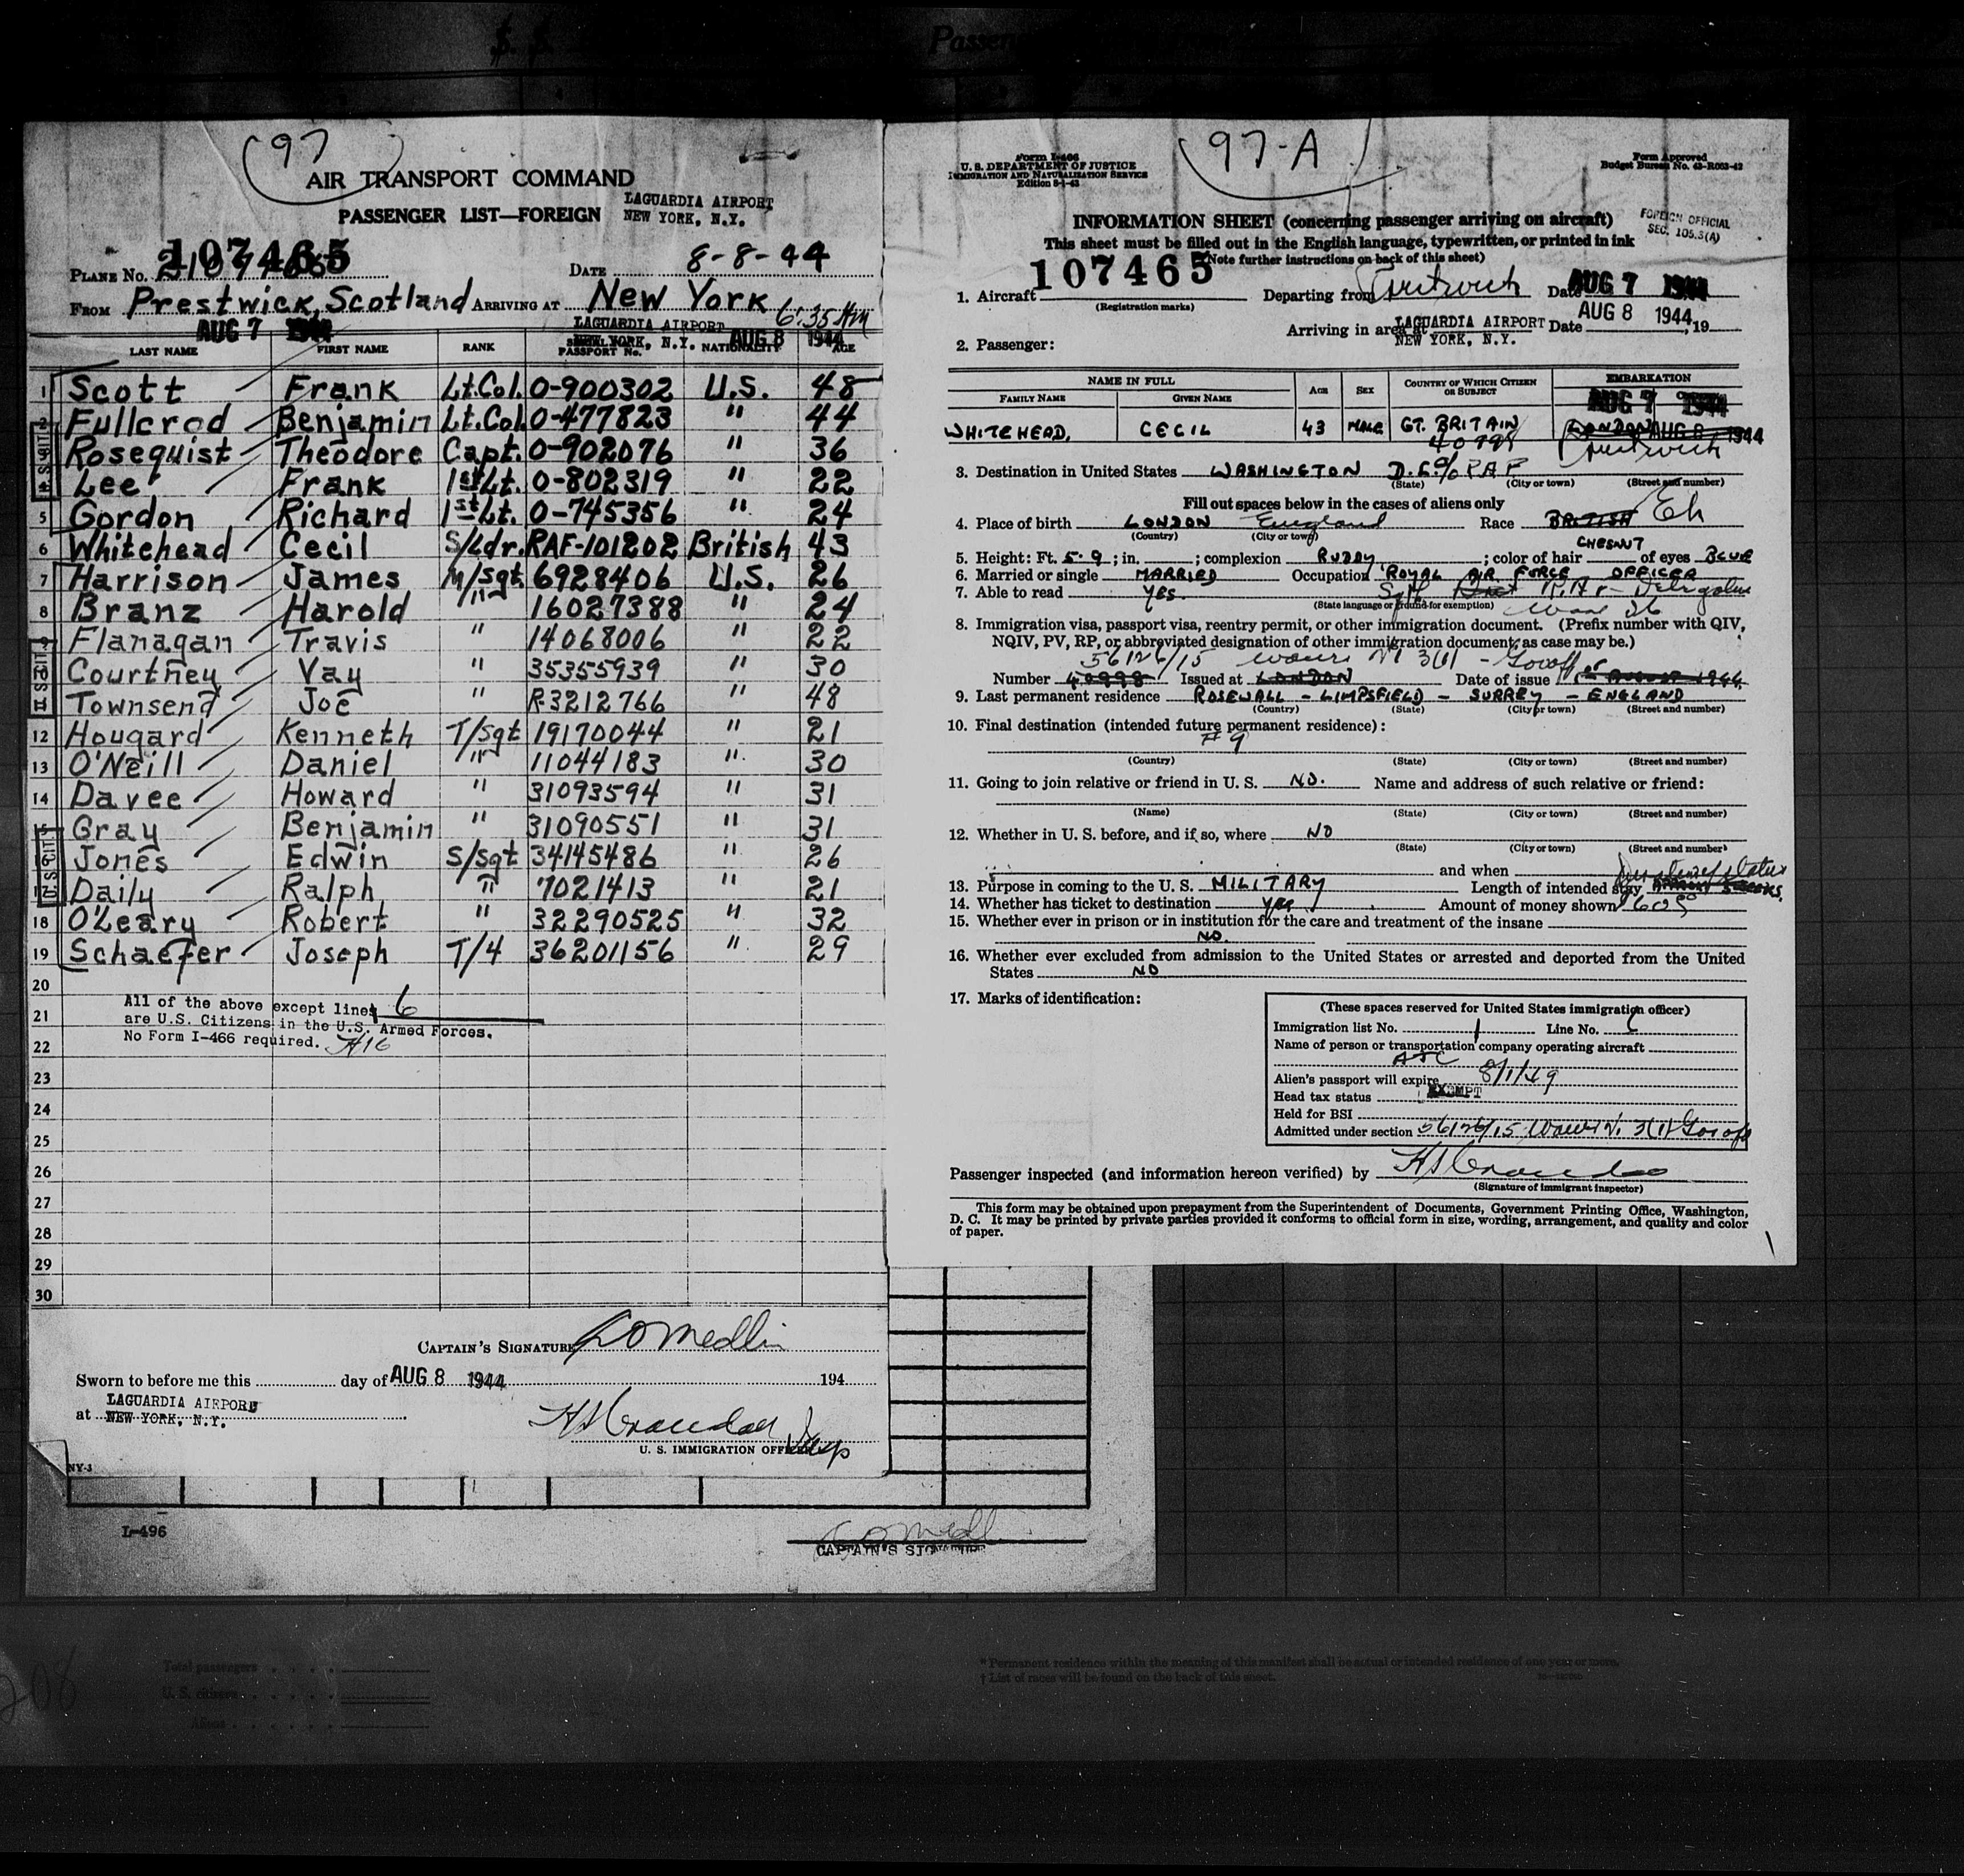 97
AIR TRANSPORT COMMAND
PASSENGER LIST—FOREIGN
LAGUARDIA AIRPORT
NEW YORK, N.Y.
PLANE No. 107465
DATE 8-8-44
FROM Prestwick, Scotland ARRIVING AT New York 6:35 AM
AUG 7 1944
LAGUARDIA AIRPORT
NEW YORK, N.Y. AUG 8 1944
LAST NAME FIRST NAME RANK PASSPORT No. NATIONALITY AGE
1 Scott Frank Lt.Col. O-900302 U.S. 48
2 Fullerod Benjamin Lt.Col. O-477823 " 44
Rosequist Theodore Capt. O-902076 " 36
4 Lee Frank 1st Lt. O-802319 " 22
5 Gordon Richard 1st Lt. O-745356 " 24
6 Whitehead Cecil S/Ldr. RAF-101202 British 43
7 Harrison James M/Sgt 6928406 U.S. 26
8 Branz Harold " 16027388 " 24
9 Flanagan Travis " 14068006 " 22
Courtney Vay " 35355939 " 30
Townsend Joe " R-3212766 " 48
12 Hougard Kenneth T/Sgt 19170044 " 21
13 O'Neill Daniel " 11044183 " 30
14 Davee Howard " 31093594 " 31
Gray Benjamin " 31090551 " 31
Jones Edwin S/Sgt 34145486 " 26
17 Daily Ralph " 7021413 " 21
18 O'Leary Robert " 32290525 " 32
19 Schaefer Joseph T/4 36201156 " 29
20
21
22
All of the above except lines 6
are U.S. Citizens in the U.S. Armed Forces.
No Form I-466 required.
23
24
25
26
27
28
29
30
CAPTAIN'S SIGNATURE
Sworn to before me this day of AUG 8 1944 194
at LAGUARDIA AIRPORT
NEW YORK, N.Y.
U. S. IMMIGRATION OFFICER
NY-3
I-496
CAPTAIN'S SIGNATURE
97-A
Form I-466
U. S. DEPARTMENT OF JUSTICE
IMMIGRATION AND NATURALIZATION SERVICE
Edition 8-1-43
Form Approved
Budget Bureau No. 43-R063-42
INFORMATION SHEET (concerning passenger arriving on aircraft)
FOREIGN OFFICIAL
SEC. 105.3(A)
This sheet must be filled out in the English language, typewritten, or printed in ink
(Note further instructions on back of this sheet)
1. Aircraft 107465 Departing from Prestwick Date AUG 7 1944
(Registration marks)
Arriving in area at LAGUARDIA AIRPORT Date AUG 8 1944, 19
NEW YORK, N.Y.
2. Passenger:
NAME IN FULL AGE SEX COUNTRY OF WHICH CITIZEN OR SUBJECT EMBARKATION
FAMILY NAME GIVEN NAME
AUG 7 1944
WHITEHEAD, CECIL 43 MALE GT. BRITAIN LONDON AUG 8 1944
Prestwick
3. Destination in United States WASHINGTON D.C. c/o RAF
(State) (City or town) (Street and number)
Fill out spaces below in the cases of aliens only
4. Place of birth LONDON England Race BRITISH
(Country) (City or town)
5. Height: Ft. 5-9; in. ; complexion RUDDY; color of hair CHESNUT of eyes BLUE
6. Married or single MARRIED Occupation ROYAL AIR FORCE OFFICER
7. Able to read yes
(State language or ground for exemption)
8. Immigration visa, passport visa, reentry permit, or other immigration document. (Prefix number with QIV,
NQIV, PV, RP, or abbreviated designation of other immigration document, as case may be.)
56126/15
Number 40998 Issued at LONDON Date of issue
9. Last permanent residence ROSEWALL - LIMPSFIELD - SURREY - ENGLAND
(Country) (State) (City or town) (Street and number)
10. Final destination (intended future permanent residence):
#9
(Country) (State) (City or town) (Street and number)
11. Going to join relative or friend in U. S. NO. Name and address of such relative or friend:
(Name) (State) (City or town) (Street and number)
12. Whether in U. S. before, and if so, where NO
(State) (City or town) (Street and number)
and when
13. Purpose in coming to the U. S. MILITARY Length of intended stay
14. Whether has ticket to destination yes Amount of money shown
15. Whether ever in prison or in institution for the care and treatment of the insane
NO.
16. Whether ever excluded from admission to the United States or arrested and deported from the United
States NO
17. Marks of identification:
(These spaces reserved for United States immigration officer)
Immigration list No. 1 Line No. 6
Name of person or transportation company operating aircraft
ATC
Alien's passport will expire 8/1/49
Head tax status EXEMPT
Held for BSI
Admitted under section 56126/15
Passenger inspected (and information hereon verified) by
(Signature of immigrant inspector)
This form may be obtained upon prepayment from the Superintendent of Documents, Government Printing Office, Washington,
D. C. It may be printed by private parties provided it conforms to official form in size, wording, arrangement, and quality and color
of paper.
Total passengers
U. S. citizens
Aliens
* Permanent residence within the meaning of this manifest shall be actual or intended residence of one year or more.
† List of races will be found on the back of this sheet.